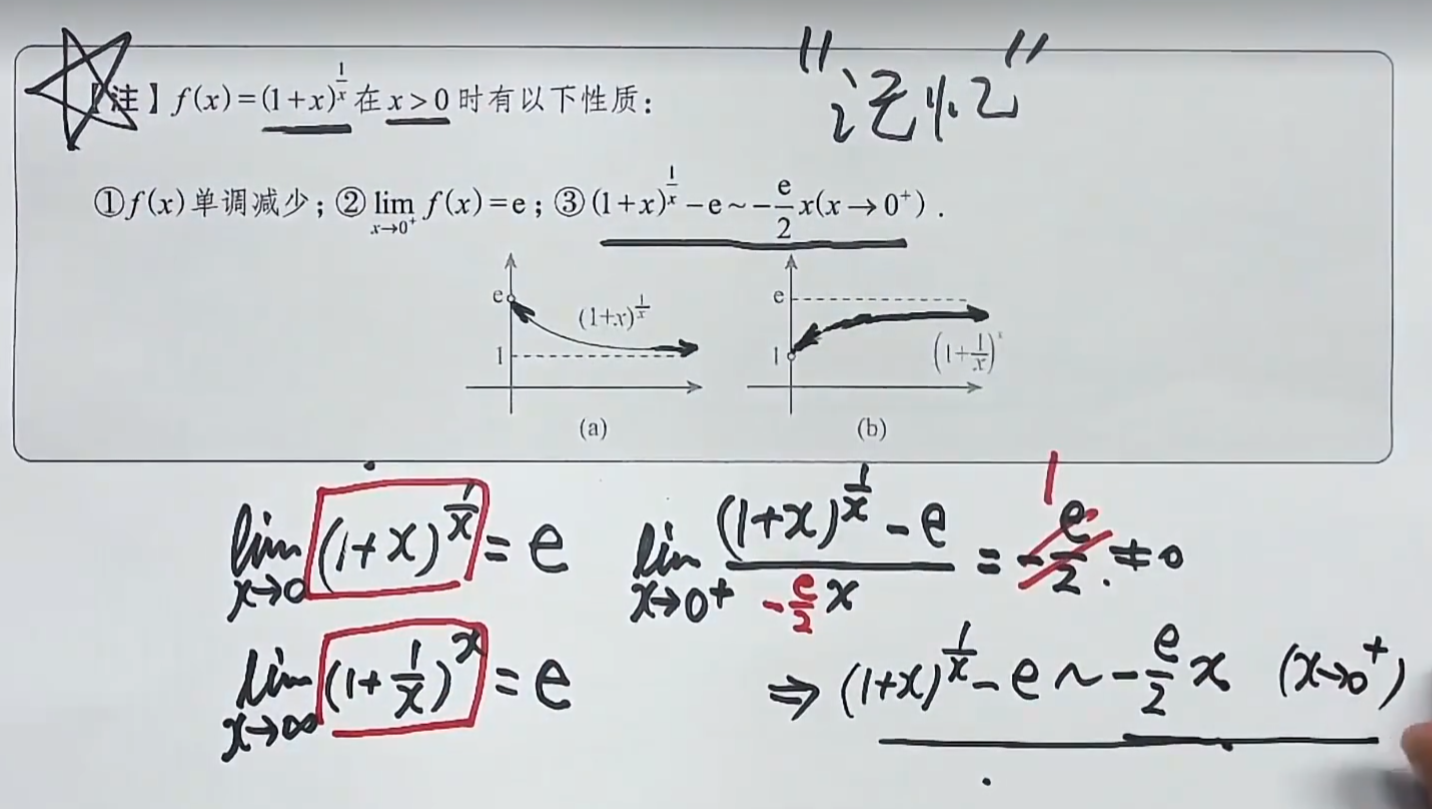 "记忆"
【注】f(x)=(1+x)^{\frac{1}{x}}在x>0时有以下性质：
①f(x)单调减少；②\lim_{x→0^+} f(x)=e；③(1+x)^{\frac{1}{x}}-e~-\frac{e}{2}x(x→0^+).
e
(1+x)^{\frac{1}{x}}
1
(a)
e
1
(1+\frac{1}{x})^x
(b)
\lim_{x→0} (1+x)^{\frac{1}{x}} = e
\lim_{x→∞} (1+\frac{1}{x})^x = e
\lim_{x→0^+} \frac{(1+x)^{\frac{1}{x}}-e}{-\frac{e}{2}x} = -\frac{e}{2}. ≠0
1
⇒ (1+x)^{\frac{1}{x}}-e ~ -\frac{e}{2}x (x→0^+)